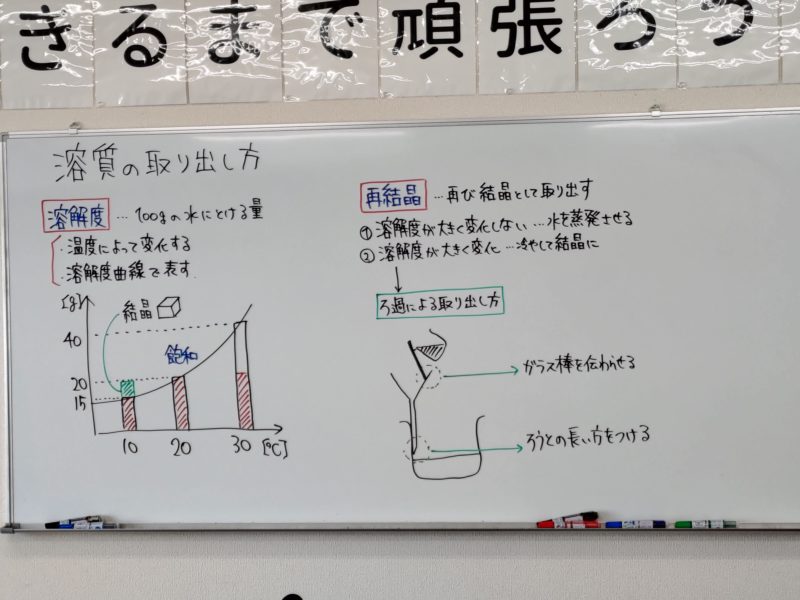 きるまで頑張ろう
溶質の取り出し方
溶解度 … 100gの水にとける量
・温度によって変化する
・溶解度曲線で表す
[g]
結晶
40
飽和
20
15
10 20 30 [℃]
再結晶 … 再び結晶として取り出す
① 溶解度が大きく変化しない … 水を蒸発させる
② 溶解度が大きく変化 … 冷やして結晶に
ろ過による取り出し方
ガラス棒を伝わらせる
ろうとの長い方をつける